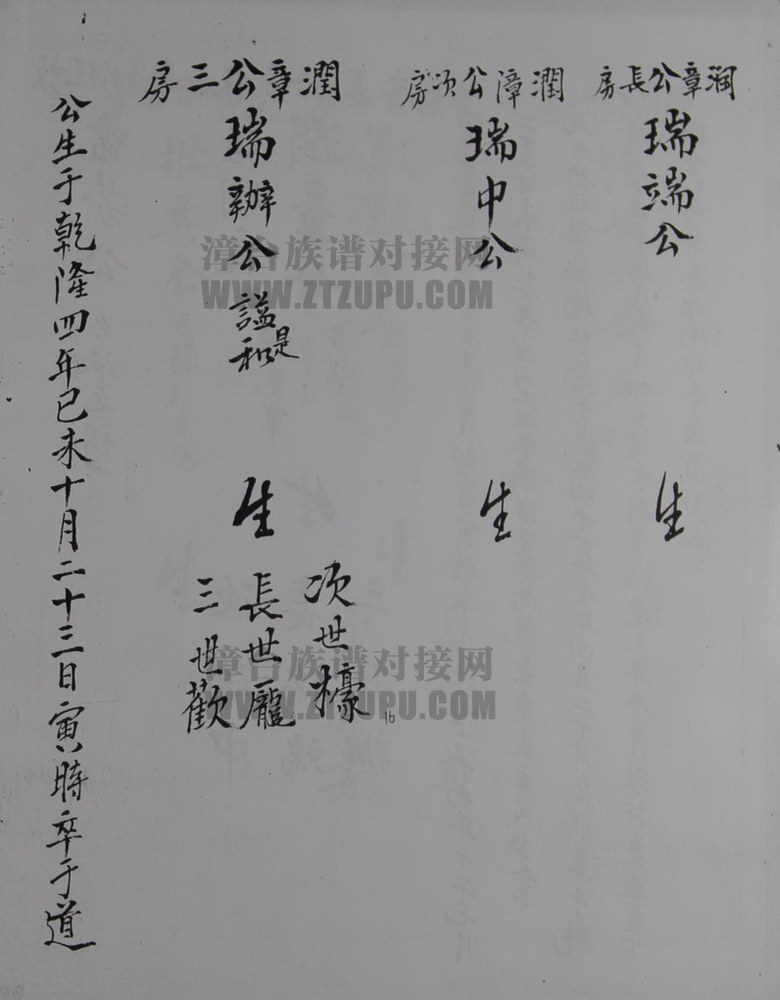 潤章公長房
瑞端公
生
潤漳公次房
瑞中公
生
潤章公三房
瑞辦公
謚是和
生
次世檺
長世龐
三世歡
公生于乾隆四年已未十月二十三日寅时時卒于道
16
漳台族谱对接网
WWW.ZTZUPU.COM
漳台族谱对接网
WWW.ZTZUPU.COM